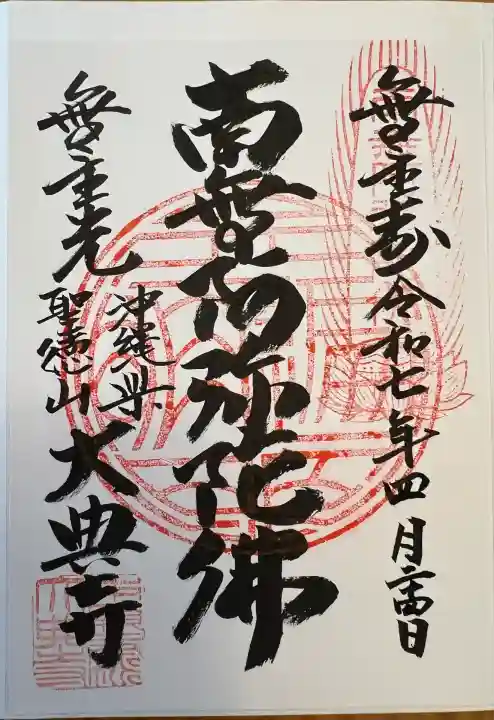 無量寿 令和七年四月日
南無阿弥陀佛
無量光
沖縄県
聖徳山
大典寺